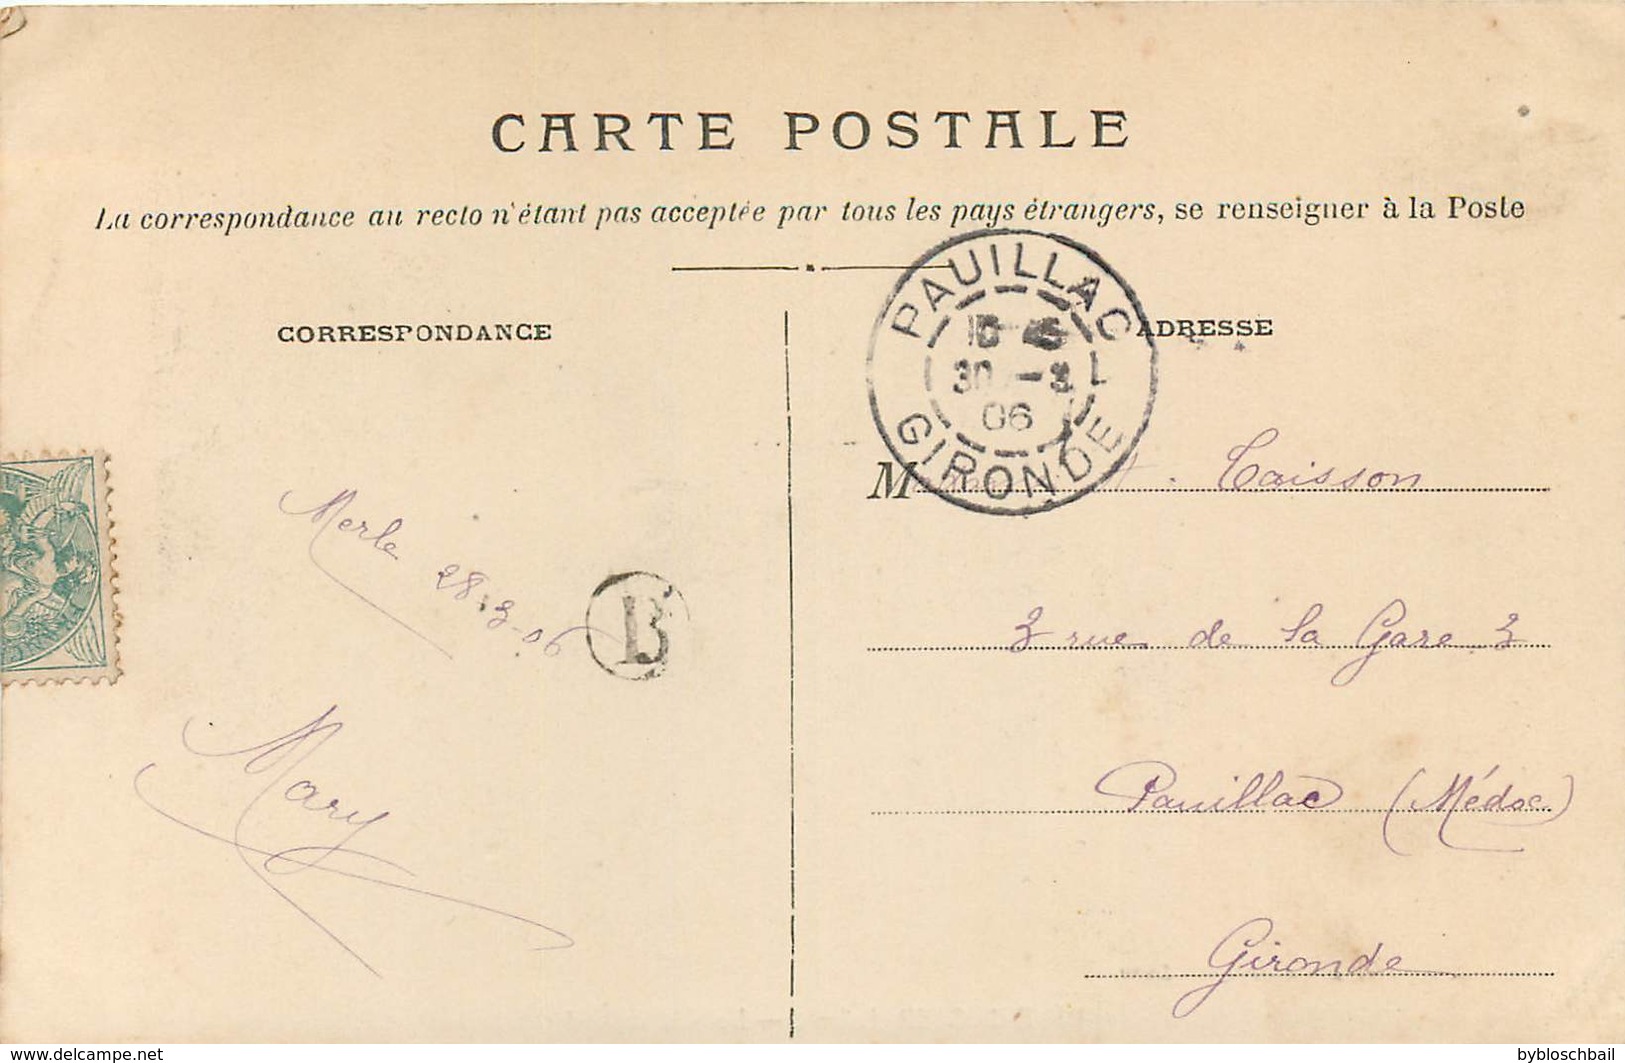 CARTE POSTALE
La correspondance au recto n'étant pas acceptée par tous les pays étrangers, se renseigner à la Poste
CORRESPONDANCE
ADRESSE
PAUILLAC
30 -3
06
GIRONDE
M Caisson
3 rue de la Gare 3
Pauillac (Médoc)
Gironde
Merle 28-3-06
B
Mary
www.delcampe.net
bybloschbail